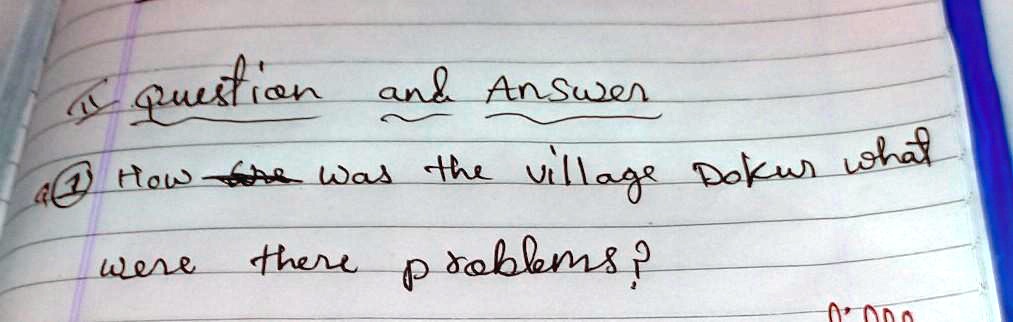 Question and Answer
Q① How was the village Dokur what
were there problems?